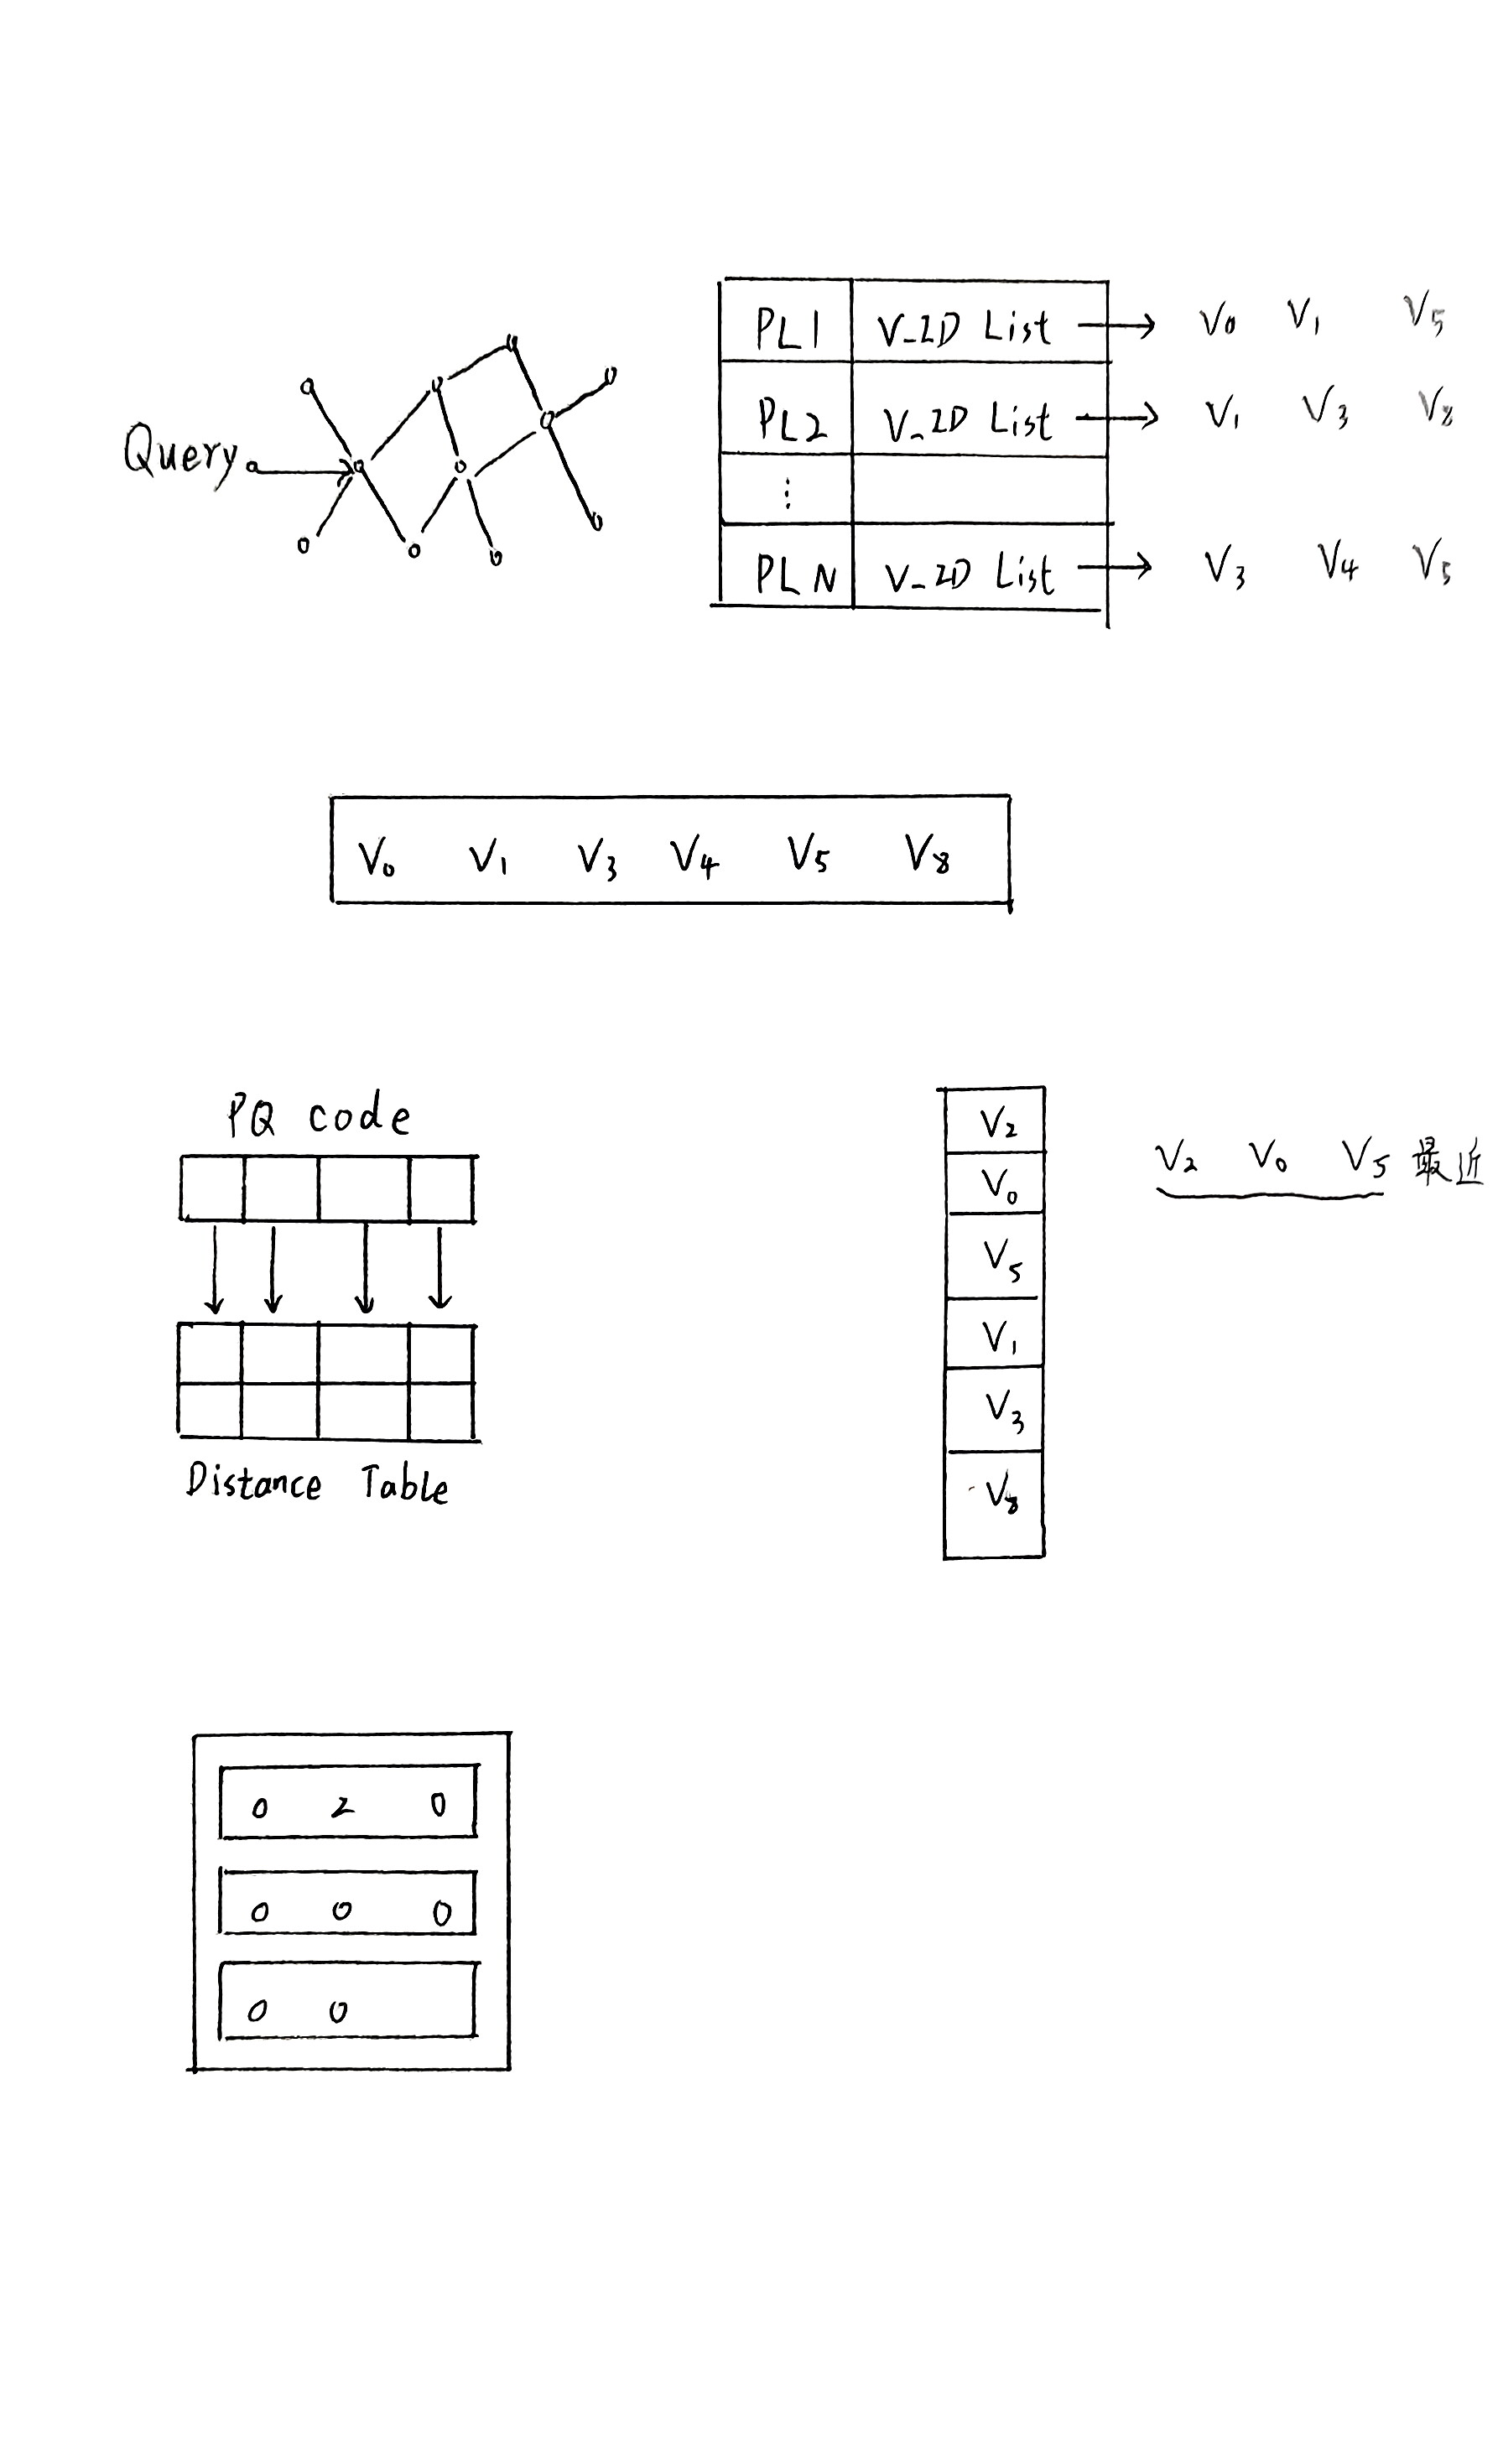 Query
PL1 V_ID List V0 V1 V5
PL2 V_ID List V1 V3 V8
⋮
PLN V_ID List V3 V4 V5
V0 V1 V3 V4 V5 V8
PQ code
Distance Table
V2
V0
V5
V1
V3
V8
V2 V0 V5 最近
0 2 0
0 0 0
0 0